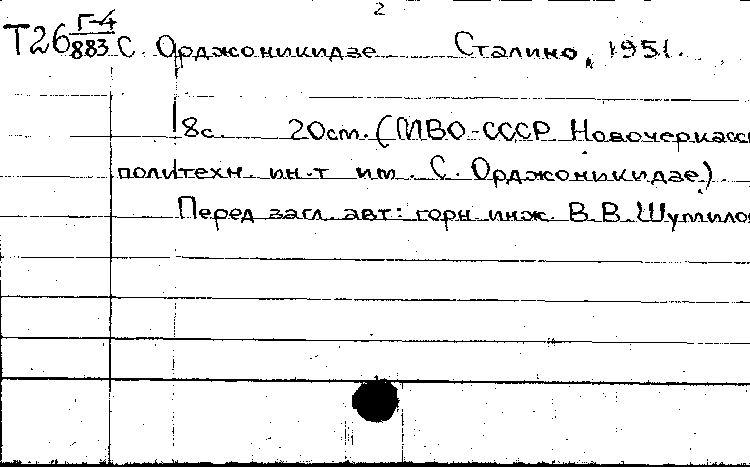 2
Т26 Г-4/883 С. Орджоникидзе Сталино, 1951.
18с. 20см. (МВО-СССР Новочеркасс
политехн. ин-т им. С. Орджоникидзе).
Перед загл. авт: горн. инж. В.В. Шумило